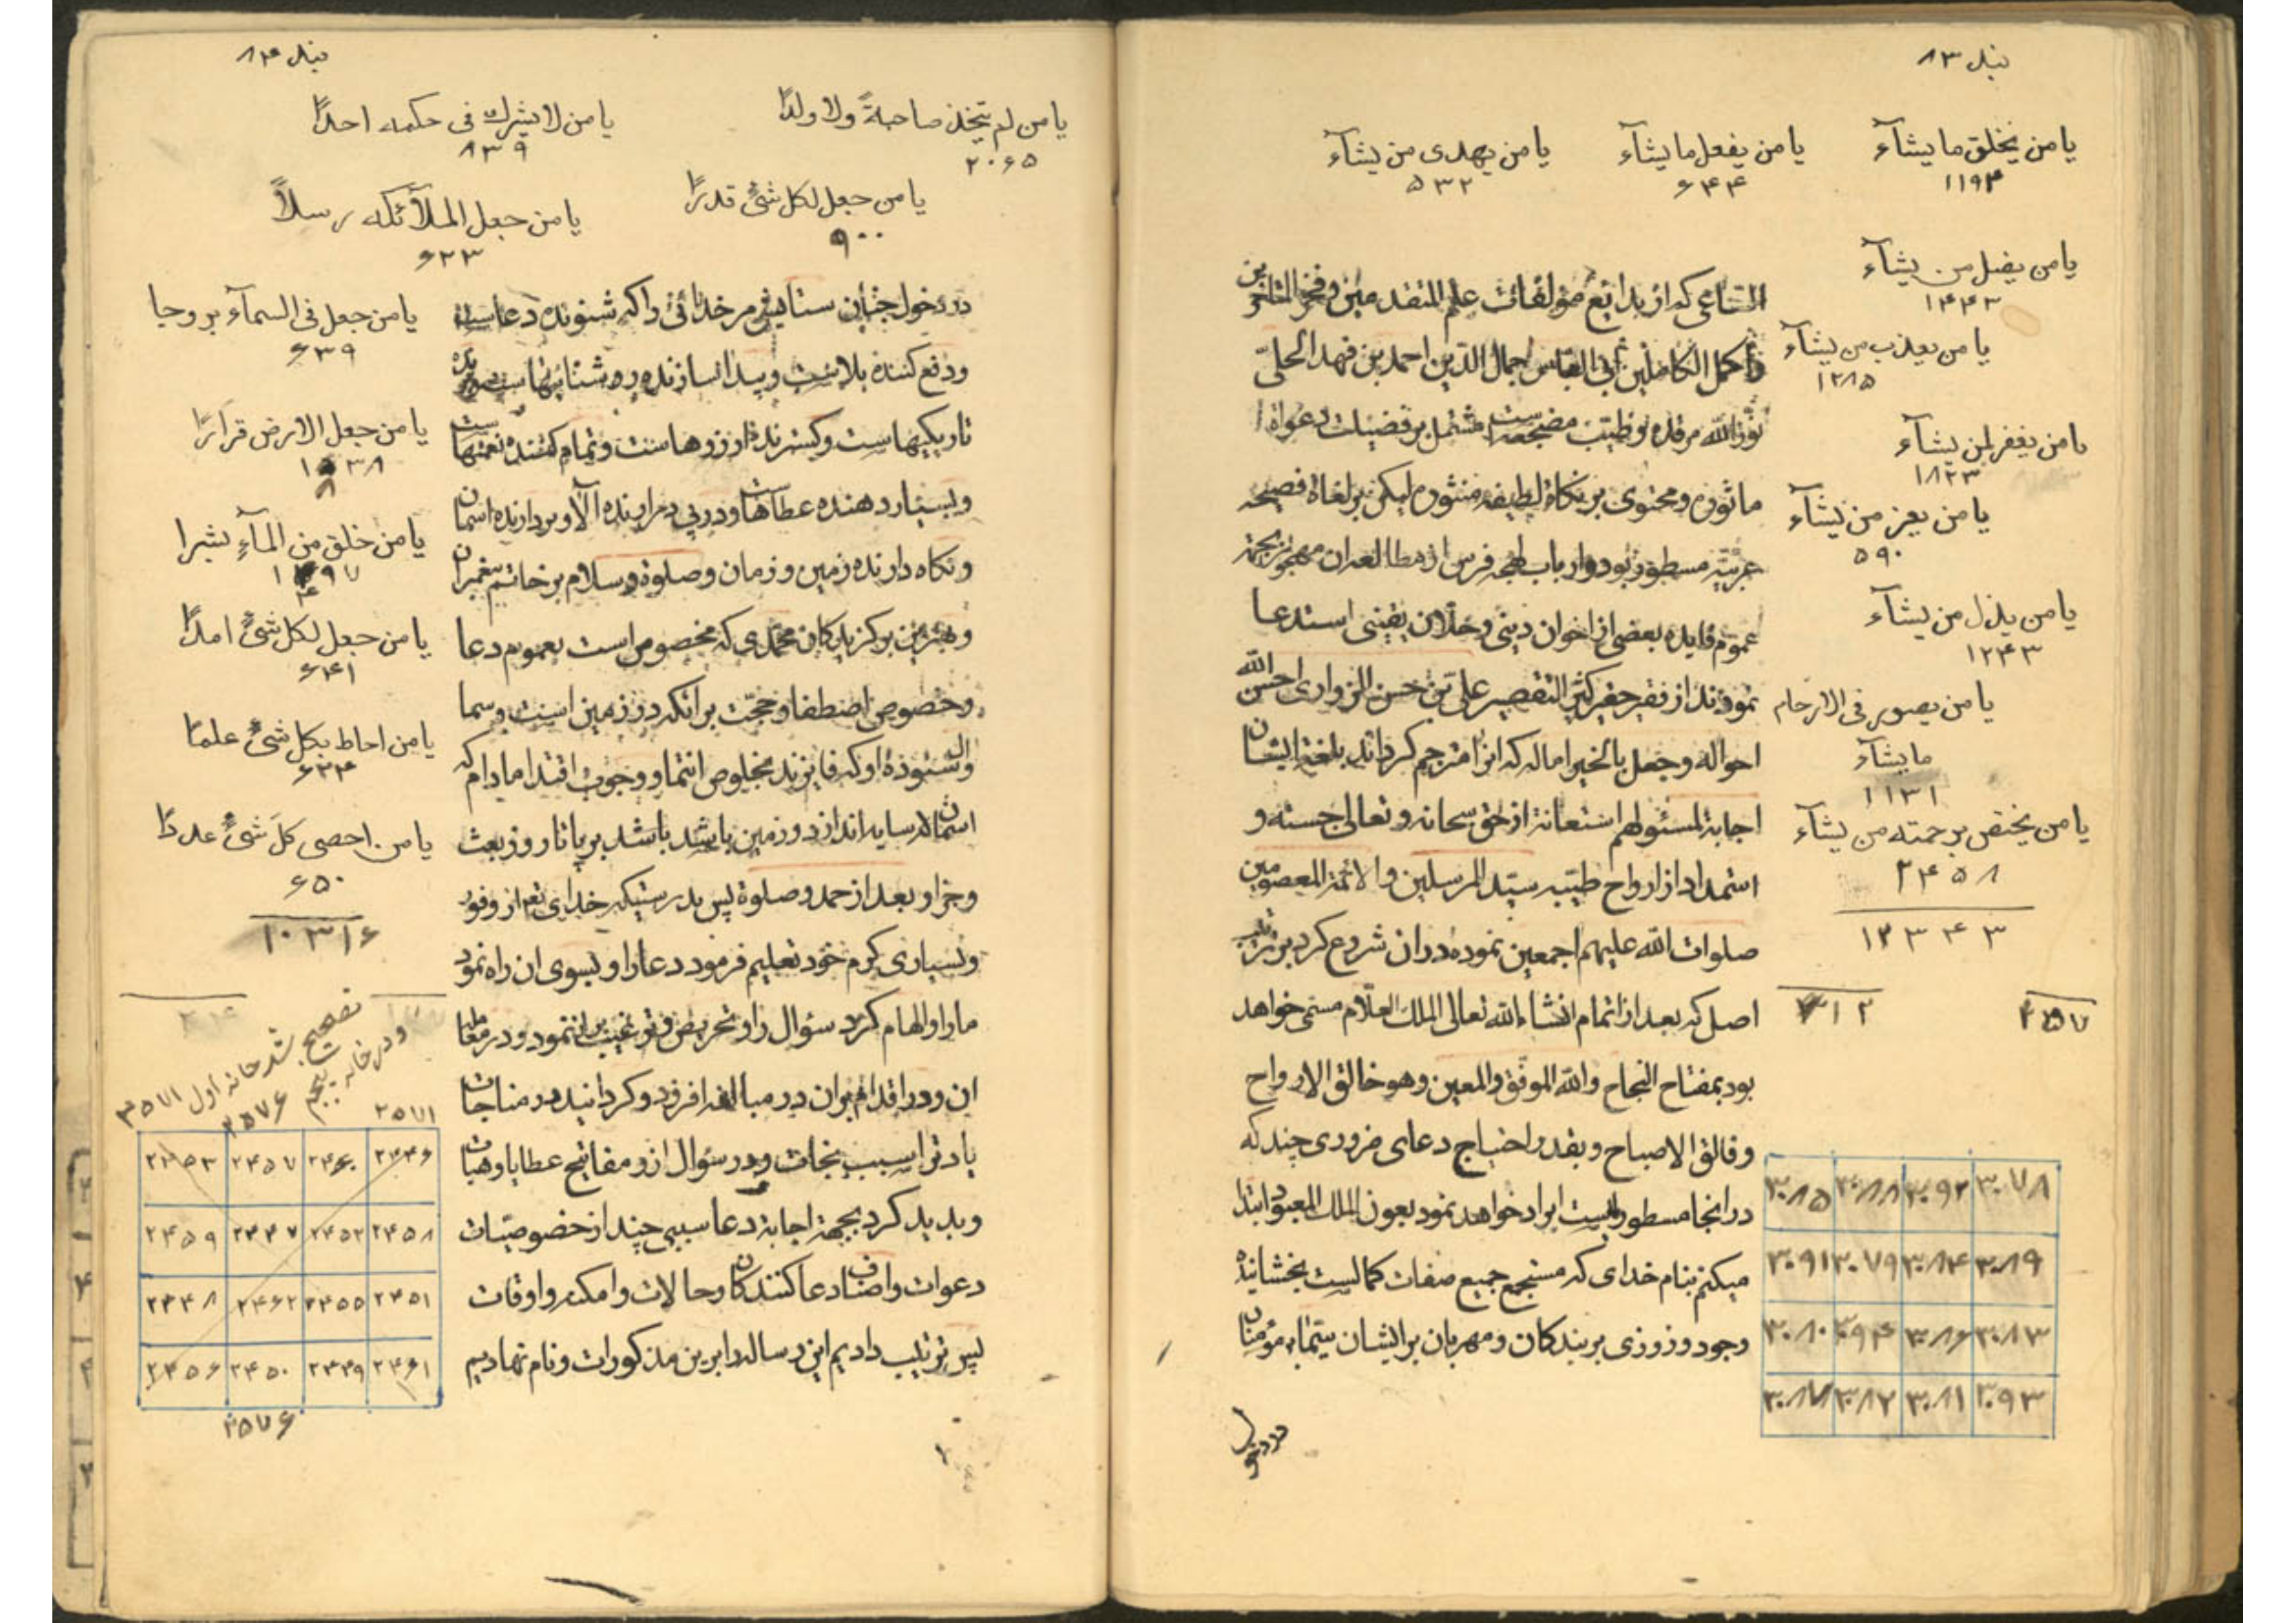 بند ۸۳
یا من یخلق ما یشآء
۱۱۹۴
یا من یفعل ما یشآء
۶۴۴
یا من یهدی من یشآء
۵۳۲
یا من یضل من یشآء
۱۴۴۳
یا من یعذب من یشآء
۱۲۸۵
یا من یغفر لمن یشآء
۱۸۲۳
یا من یعز من یشآء
۵۹۰
یا من یذل من یشآء
۱۲۴۳
یا من یصور فی الارحام
ما یشآء
۱۱۳۱
یا من یختص برحمته من یشآء
۲۴۵۸
۱۲۳۴۳
الساعی که از بدایع مؤلفات علم المتقدمین و فخر المتاخرین
و اکمل الکاملین ابی العباس جمال الدین احمد بن فهد الحلی
نور الله مرقده و طیب مضجعه است مشتمل بر فضیلت دعواة
ماثوره و محتوی بر نکاة لطیفه منثوره لیکن بر لغاة فصیحه
عربیه مسطور بود و ارباب لهجه فرس از مطالعه ان مهجور بجهة
عموم فایده بعضی از اخوان دینی و خلان یقینی استدعا
نمودند از فقیر حقیر کثیر التقصیر علی بن حسن الزواری احسن الله
احواله و جعل بالخیر اماله که انرا مترجم کرداند بلغة ایشان
اجابة لمسئولهم استعانة از حق سحانه و تعالی جسته و
استمداد از ارواح طیبه سید المرسلین و الائمة المعصومین
صلوات الله علیهم اجمعین نموده در ان شروع کرد بر ترتیب
اصل که بعد از اتمام انشاء الله تعالی الملك العلام مسمی خواهد
بود بمفتاح النجاح والله الموفق والمعین وهو خالق الارواح
وفالق الاصباح و بقدر احتیاج دعای ضروری چند که
در انجا مسطور نیست ایراد خواهد نمود بعون الملك المعبود ابتدا
میکنم بنام خدای که مستجمع جمیع صفات کمالیست بخشاینده
وجود و روزی بر بندکان و مهربان بر ایشان سیما بر مؤمنان
۳۰۷۸ ۳۰۹۲ ۳۰۸۸ ۳۰۸۵
۳۰۸۹ ۳۰۸۴ ۳۰۷۹ ۳۰۹۱
۳۰۸۳ ۳۰۸۶ ۳۰۹۴ ۳۰۸۰
۳۰۹۳ ۳۰۸۱ ۳۰۸۲ ۳۰۸۷
بند ۸۴
یا من لم یتخذ صاحبة ولا ولدًا
۲۰۶۵
یا من لا یشرك فی حکمه احدًا
۸۳۹
یا من جعل لکل شئ قدرًا
۹۰۰
یا من جعل الملآئکه رسلاً
۶۲۳
یا من جعل فی السمآء بروجا
۶۳۹
یا من جعل الارض قرارًا
یا من خلق من المآء بشرا
یا من جعل لکل شئ امدًا
۶۴۱
یا من احاط بکل شئ علمًا
۶۳۴
یا من احصی کل شئ عددًا
۶۵۰
۱۰۳۱۶
در دخول جنان ستایش مر خدائی را که شنونده دعاست
و دفع کننده بلاست و پیدا سازنده روشنائیهاست
تاریکیهاست و کسترنده ارزوهاست و تمام کننده نعمتهاست
و بسیار دهنده عطاهاست و در پی در ارنده آلا و بردارنده اسمان
و نکاه دارنده زمین و زمان و صلوة و سلام بر خاتم پیغمبران
و بهترین برکزیدکان محمدی که مخصوص است بعموم دعا
و خصوص اصطفا و حجت بر انکه در زمین است و سما
و ال ستوده او که فایزند بخلوص انتما و وجوب اقتدا مادام که
اسمان سایه انداز و زمین باشد برپا تا روز بعث
و جزا و بعد از حمد و صلوة پس بدرستیکه خدای تعم از وفور
و بسیاری کرم خود تعلیم فرمود دعا را و بسوی ان راه نمود
ما را و الهام کرد سؤال را و تحریص و ترغیب بر ان نمود و در معاملة
ان و در اقدام بر ان در مبالغه افزود و کردانید در مناجات
یاد ترا سبب نجات و در سؤال ازو مفاتیح عطایا و هبات
و پدید کرد بجهة اجابة دعا سببی چند از خصوصیات
دعوات و اصناف دعا کنندکان و حالات و امکنه و اوقات
پس ترتیب دادیم این رساله را برین مذکورات و نام نهادیم
تصحیح شد خانه اول ۳۵۷۱
و در خانه پنجم ۳۵۷۶
۲۵۷۱
۲۴۴۶ ۲۴۶۰ ۲۴۵۷ ۲۴۵۳
۲۴۵۸ ۲۴۵۲ ۲۴۴۷ ۲۴۵۹
۲۴۵۱ ۲۴۵۵ ۲۴۶۲ ۲۴۴۸
۲۴۶۱ ۲۴۴۹ ۲۴۵۰ ۲۴۵۶
۳۵۷۶